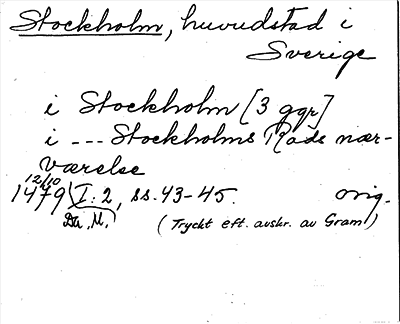 Stockholm, huvudstad i
Sverige
i Stockholm [3 ggr]
i --- Stockholms Råds nær-
værelse
12/10
1479 I:2, ss. 43-45. orig.
Da. M. (Tryckt eft. avskr. av Gram)